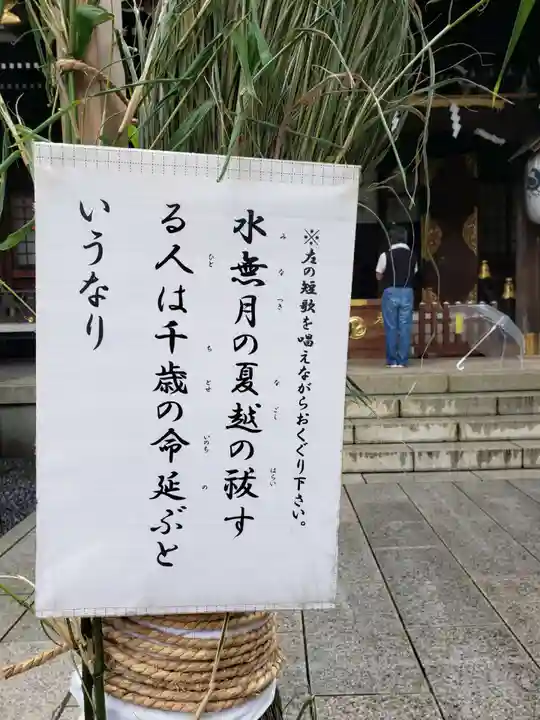 ※左の短歌を唱えながらおくぐり下さい。
水無月の夏越の祓す
る人は千歳の命延ぶと
いうなり
みなつき
なごし
はらい
ひと
ちとせ
いのち
の